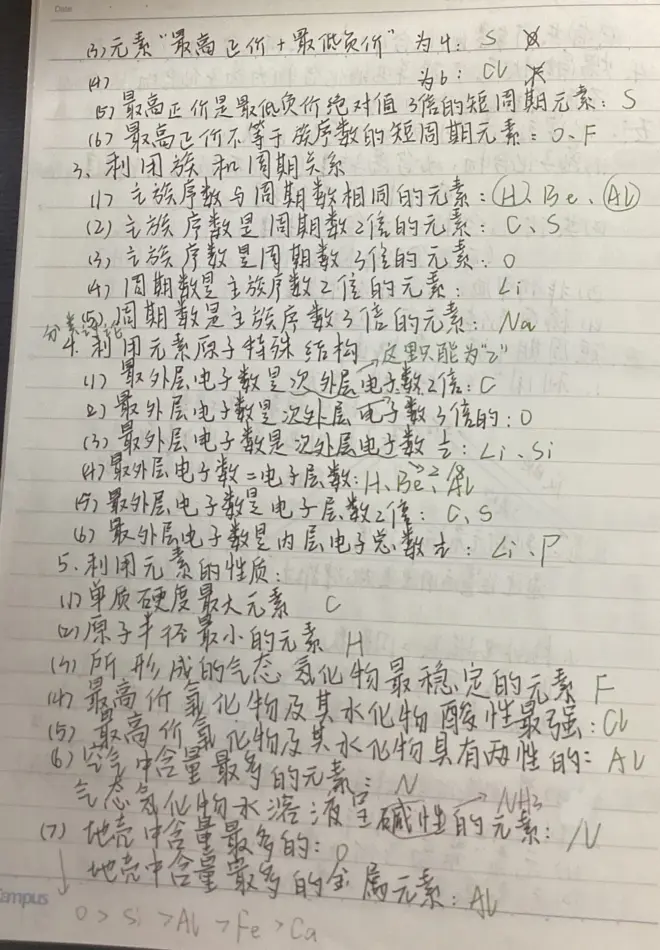 Date
(3) 元素“最高正价+最低负价”为4: S
(4) 为6: Cl
(5) 最高正价是最低负价绝对值3倍的短周期元素: S
(6) 最高正价不等于族序数的短周期元素: O、F
3. 利用族和周期关系
(1) 主族序数与周期数相同的元素: H、Be、Al
(2) 主族序数是周期数2倍的元素: C、S
(3) 主族序数是周期数3倍的元素: O
(4) 周期数是主族序数2倍的元素: Li
(5) 周期数是主族序数3倍的元素: Na
分类讨论
4. 利用元素原子特殊结构 → 这里只能为“2”
(1) 最外层电子数是次外层电子数2倍: C
(2) 最外层电子数是次外层电子数3倍的: O
(3) 最外层电子数是次外层电子数½: Li、Si
→2 /8
(4) 最外层电子数=电子层数: H、Be、Al
(5) 最外层电子数是电子层数2倍: C、S
(6) 最外层电子数是内层电子总数½: Li、P
5. 利用元素的性质:
(1) 单质硬度最大元素 C
(2) 原子半径最小的元素 H
(3) 所形成的气态氢化物最稳定的元素 F
(4) 最高价氧化物及其水化物酸性最强: Cl
(5) 最高价氧化物及其水化物具有两性的: Al
(6) 空气中含量最多的元素: N
气态氢化物水溶液呈碱性的元素: N → NH3
(7) 地壳中含量最多的: O
地壳中含量最多的金属元素: Al
Campus
O > Si > Al > Fe > Ca